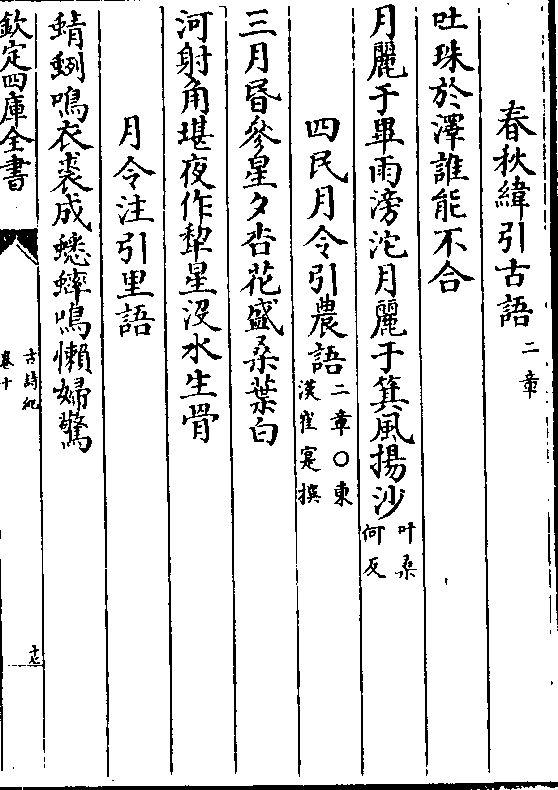 春秋緯引古語二章
吐珠於澤誰能不合
月麗于畢雨滂沱月麗于箕風揚沙叶桑何反
四民月令引農語二章○東漢崔寔撰
三月昏參星夕杏花盛桑葉白
河射角堪夜作犂星没水生骨
月令注引里語
蜻蛚鳴衣裘成蟋蟀鳴懶婦驚
欽定四庫全書
古詩紀
卷十
十七